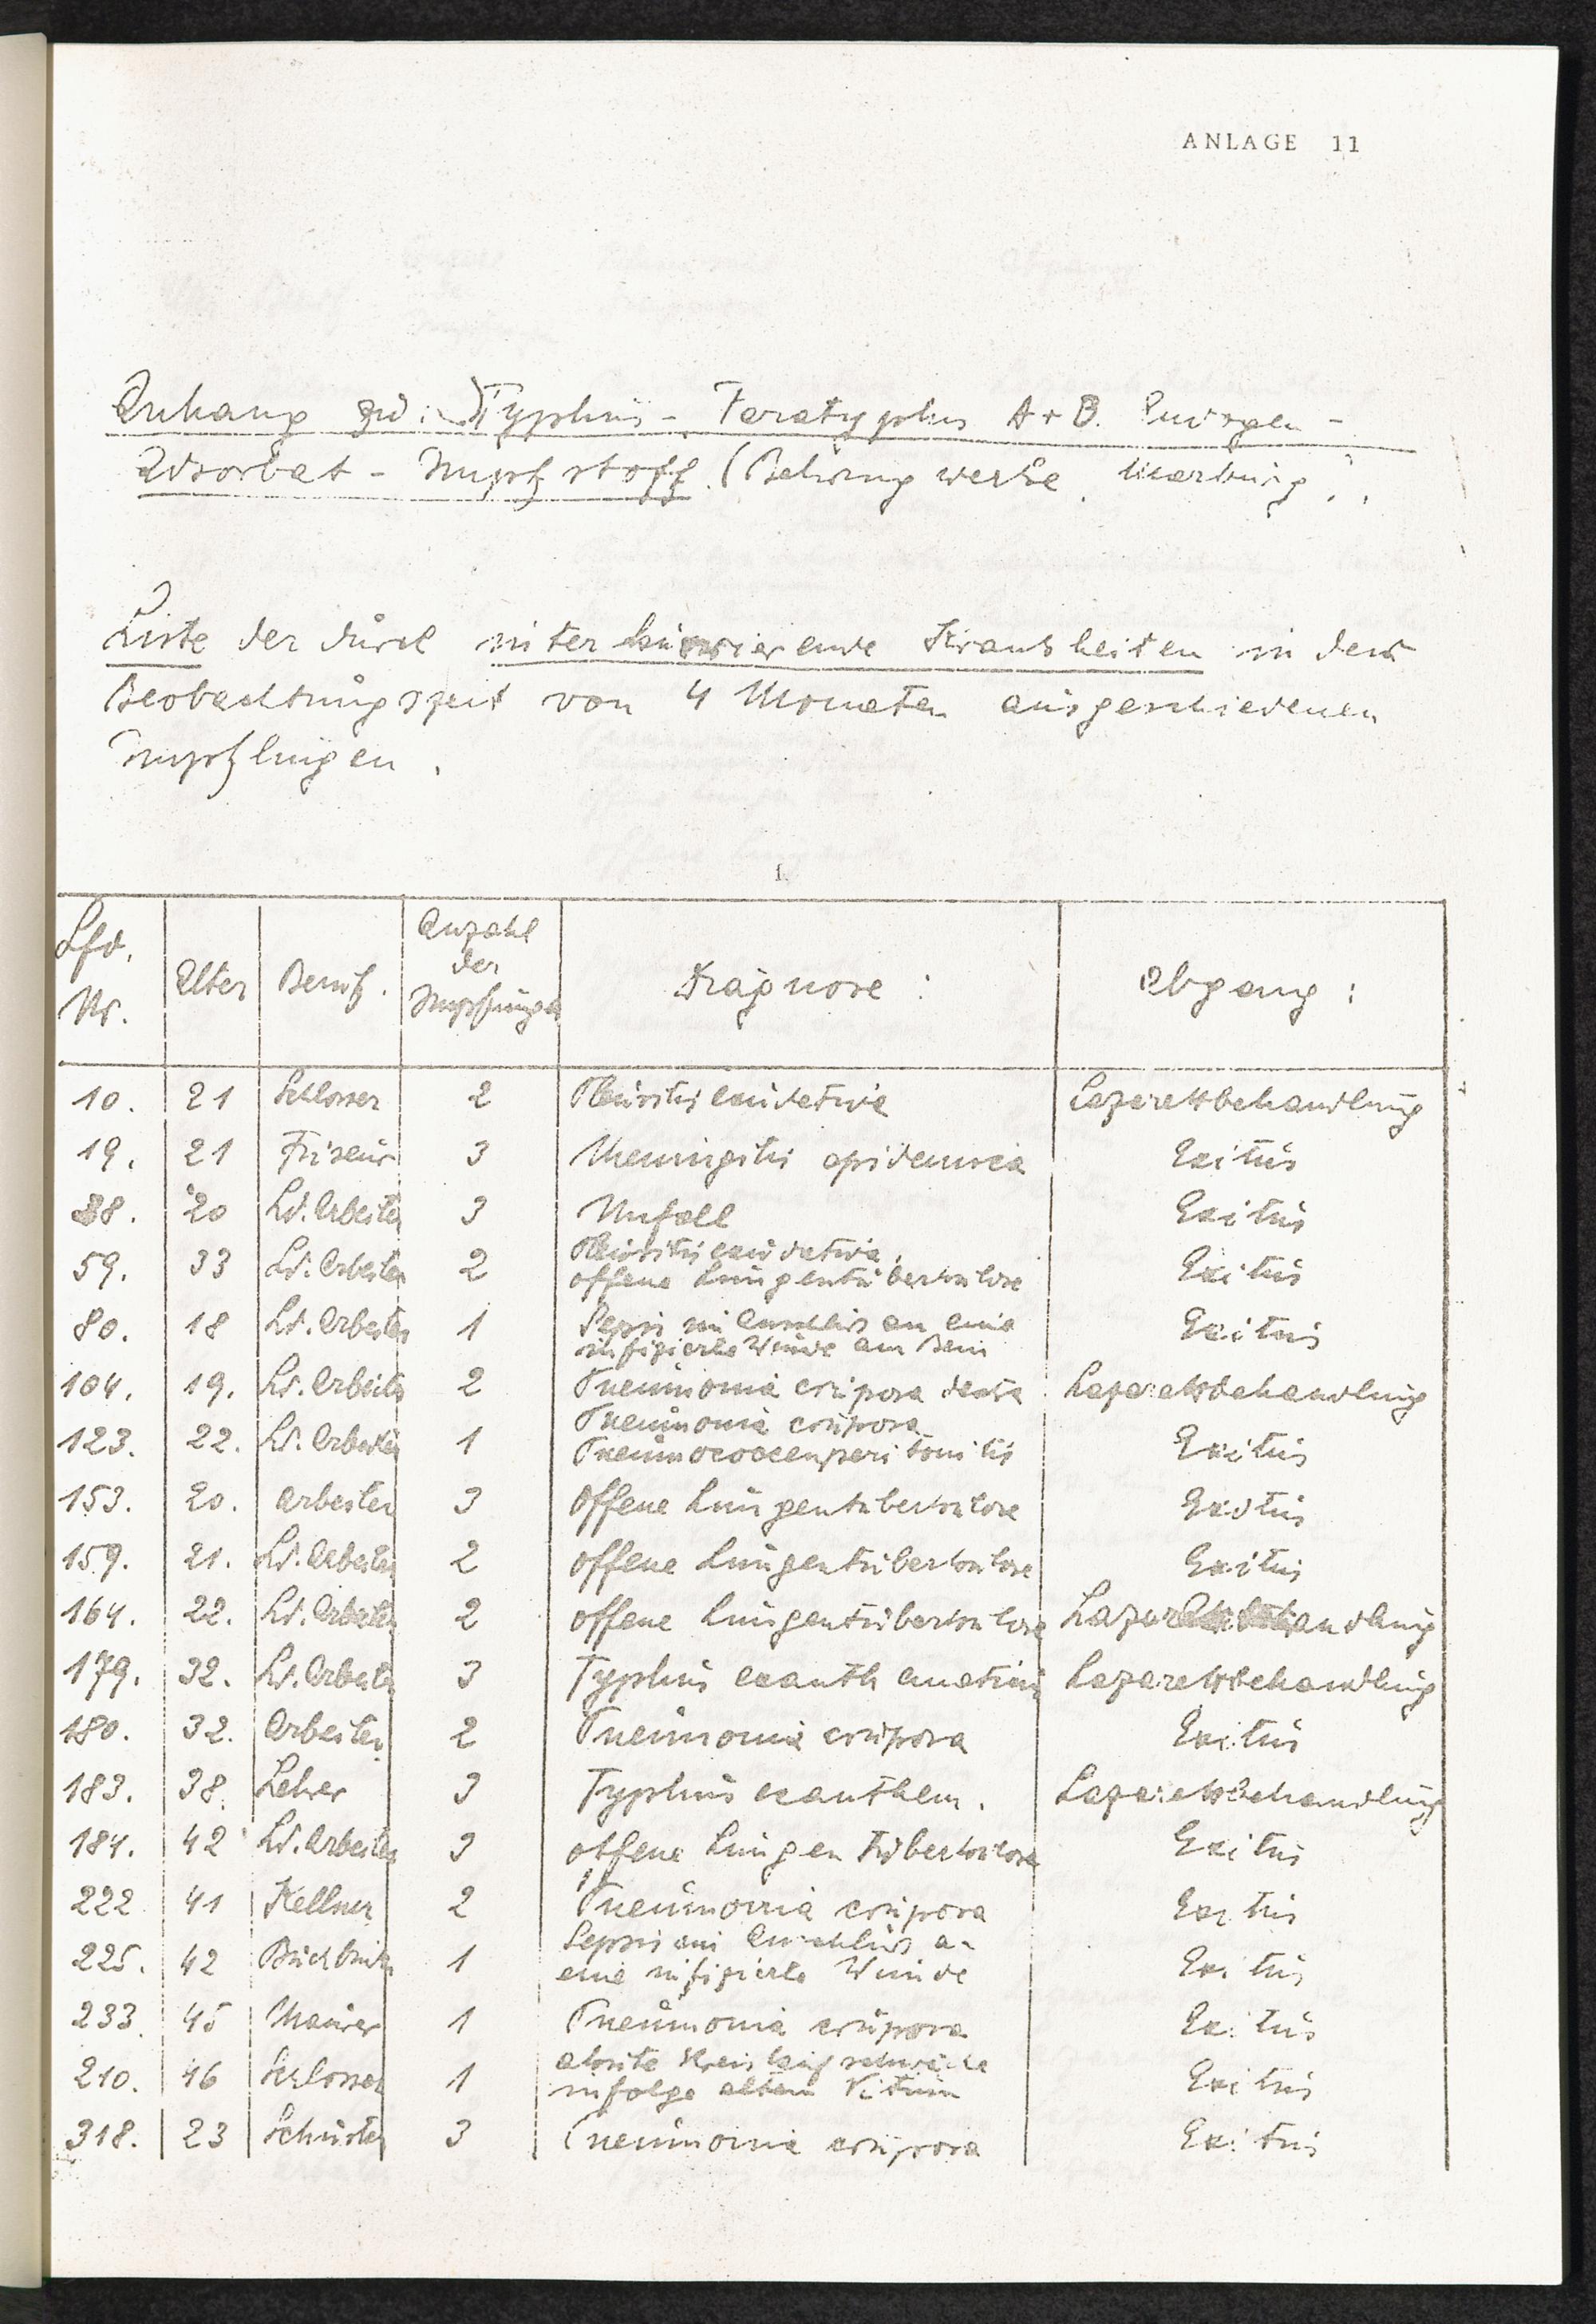 ANLAGE 11
Anhang zu: Typhus - Paratyphus A + B.
Adsorbat - Impfstoff (Behringwerke, Marburg)
Liste der durch interkurrierende Krankheiten in der
Beobachtungszeit von 4 Monaten ausgeschiedenen
Impflingen.
1.
Lfd. Nr. Alter Beruf. Anzahl der Impfungen Diagnose: Abgang:
10. 21 Schlosser 2 Pleuritis exudativa Lazarettbehandlung
19. 21 Friseur 3 Meningitis epidemica Exitus
38. 20 Ld. Arbeiter 3 Unfall Exitus
59. 33 Ld. Arbeiter 2 Pleuritis exudativa,
offene Lungentuberkulose Exitus
80. 18 Ld. Arbeiter 1 Sepsis im Anschluss an eine
infizierte Wunde am Bein Exitus
104. 19. Ld. Arbeiter 2 Pneumonia cruposa dextra Lazarettbehandlung
123. 22. Ld. Arbeiter 1 Pneumonia cruposa
Pneumococcenperitonitis Exitus
153. 20. Arbeiter 3 offene Lungentuberkulose Exitus
159. 21. Ld. Arbeiter 2 offene Lungentuberkulose Exitus
164. 22. Ld. Arbeiter 2 offene Lungentuberkulose Lazarettbehandlung
179. 32. Ld. Arbeiter 3 Typhus exanthematicus Lazarettbehandlung
180. 32. Arbeiter 2 Pneumonia cruposa Exitus
183. 38. Lehrer 3 Typhus exanthem. Lazarettbehandlung
184. 42 Ld. Arbeiter 3 offene Lungentuberkulose Exitus
222 41 Kellner 2 Pneumonia cruposa Exitus
225. 42 1 Sepsis im Anschluss an
eine infizierte Wunde Exitus
233. 45 Maurer 1 Pneumonia cruposa Exitus
210. 46 Schlosser 1 akute Kreislaufschwäche
infolge altem Vitium Exitus
318. 23 Schuster 3 Pneumonia cruposa Exitus